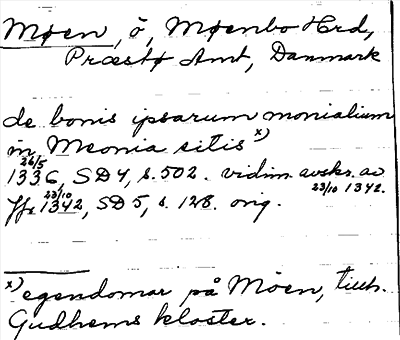 Møen, ö, Mønbo Hrd,
Præstø Amt, Danmark
de bonis ipsarum monialium
in Meonia sitis x)
26/5 1336, SD 4, s. 502. vidim. avskr. av 23/10 1342.
ffr 23/10 1342, SD 5, s. 128. orig.
x) egendomar på Möen, tillh.
Gudhems kloster.